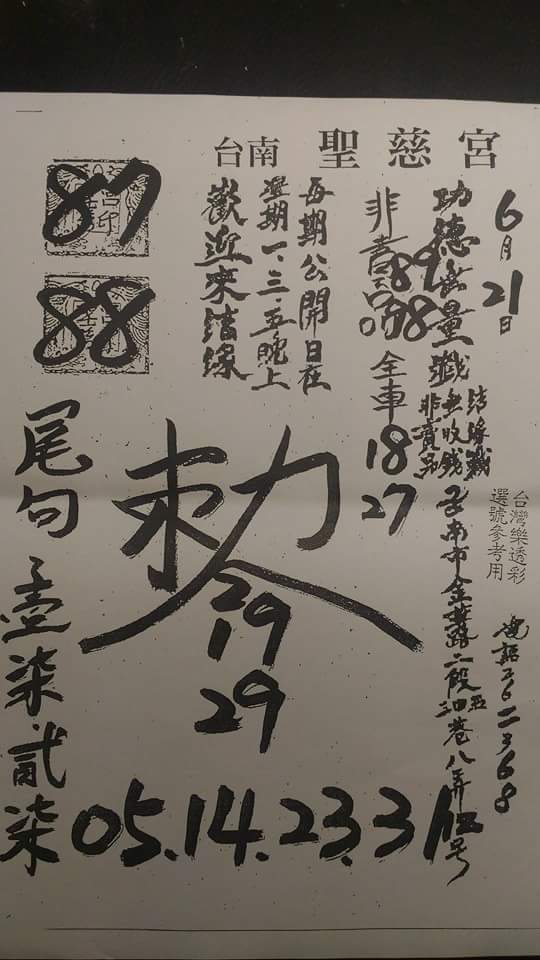 台南 聖慈宮
6月21日
功德無量
89
98
非賣品
每期公開日在
星期一、三、五晚上
歡迎來結緣
87
88
結緣
無收錢
非賣品
全車
18
27
台灣樂透彩
選號參考用
台南市金華路二段
巷八弄
号
敕令
19
29
尾句
壹柒貳柒
05.14.23.31